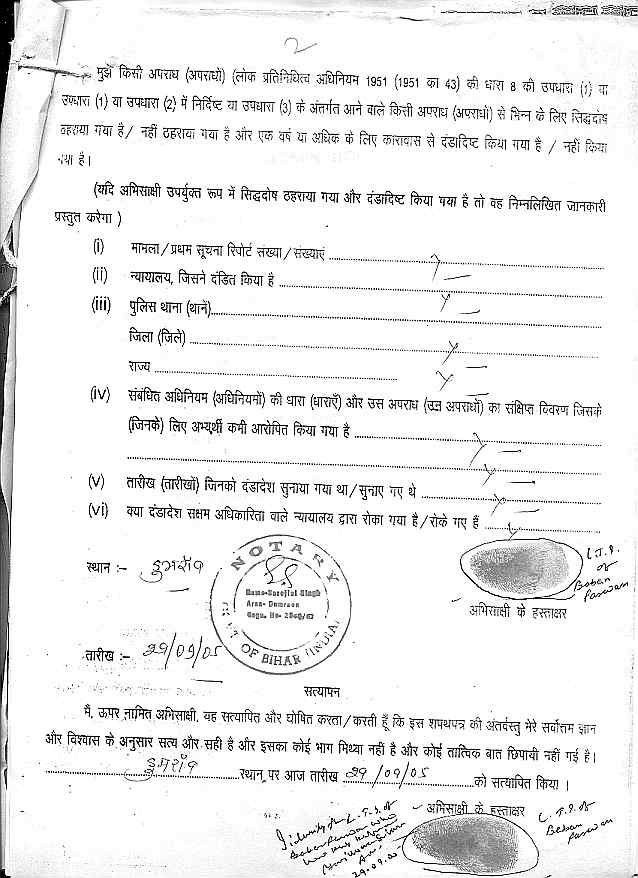 2
मुझे किसी अपराध (अपराधों) (लोक प्रतिनिधित्व अधिनियम 1951 (1951 का 43) की धारा 8 की उपधारा (1) या
उपधारा (1) या उपधारा (2) में निर्दिष्ट या उपधारा (3) के अंतर्गत आने वाले किसी अपराध (अपराधों) से भिन्न के लिए सिद्धदोष
ठहराया गया है / नहीं ठहराया गया है और एक वर्ष या अधिक के लिए कारावास से दंडादिष्ट किया गया है / नहीं किया
गया है।
(यदि अभिसाक्षी उपर्युक्त रूप में सिद्धदोष ठहराया गया और दंडादिष्ट किया गया है तो वह निम्नलिखित जानकारी
प्रस्तुत करेगा )
(i) मामला / प्रथम सूचना रिपोर्ट संख्या / संख्याएं
(ii) न्यायालय, जिसने दंडित किया है
(iii) पुलिस थाना (थानें)
जिला (जिले)
राज्य
(iv) संबंधित अधिनियम (अधिनियमों) की धारा (धाराएँ) और उस अपराध (उन अपराधों) का संक्षिप्त विवरण जिसके
(जिनके) लिए अभ्यर्थी कभी आरोपित किया गया है
(v) तारीख (तारीखों) जिनको दंडादेश सुनाया गया था / सुनाए गए थे
(vi) क्या दंडादेश सक्षम अधिकारिता वाले न्यायालय द्वारा रोका गया है / रोके गए हैं
स्थान :- डुमराँव
NOTARY
Name-Sarojlal Singh
Area- Dumraon
Regn. No-
GOVT OF BIHAR (INDIA)
L.T.I.
of
Baban
Paswan
अभिसाक्षी के हस्ताक्षर
तारीख :- 29/09/05
सत्यापन
मैं, ऊपर नामित अभिसाक्षी, यह सत्यापित और घोषित करता / करती हूँ कि इस शपथपत्र की अंतर्वस्तु मेरे सर्वोत्तम ज्ञान
और विश्वास के अनुसार सत्य और सही है और इसका कोई भाग मिथ्या नहीं है और कोई तात्विक बात छिपायी नहीं गई है।
डुमराँव स्थान पर आज तारीख 29/09/05 को सत्यापित किया ।
अभिसाक्षी के हस्ताक्षर
L.T.I. of
Baban
Paswan
I identify the L.T.I. of
Baban Paswan who
29.09.05